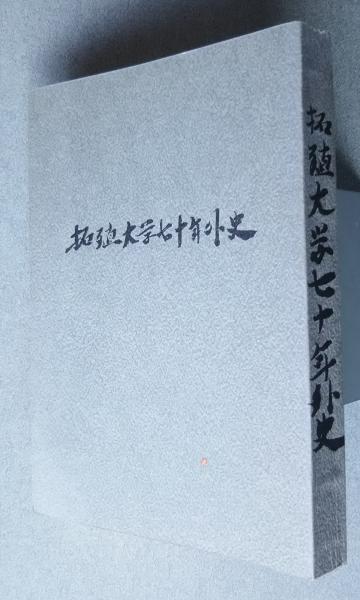 拓殖大学七十年外史
拓殖大学七十年外史